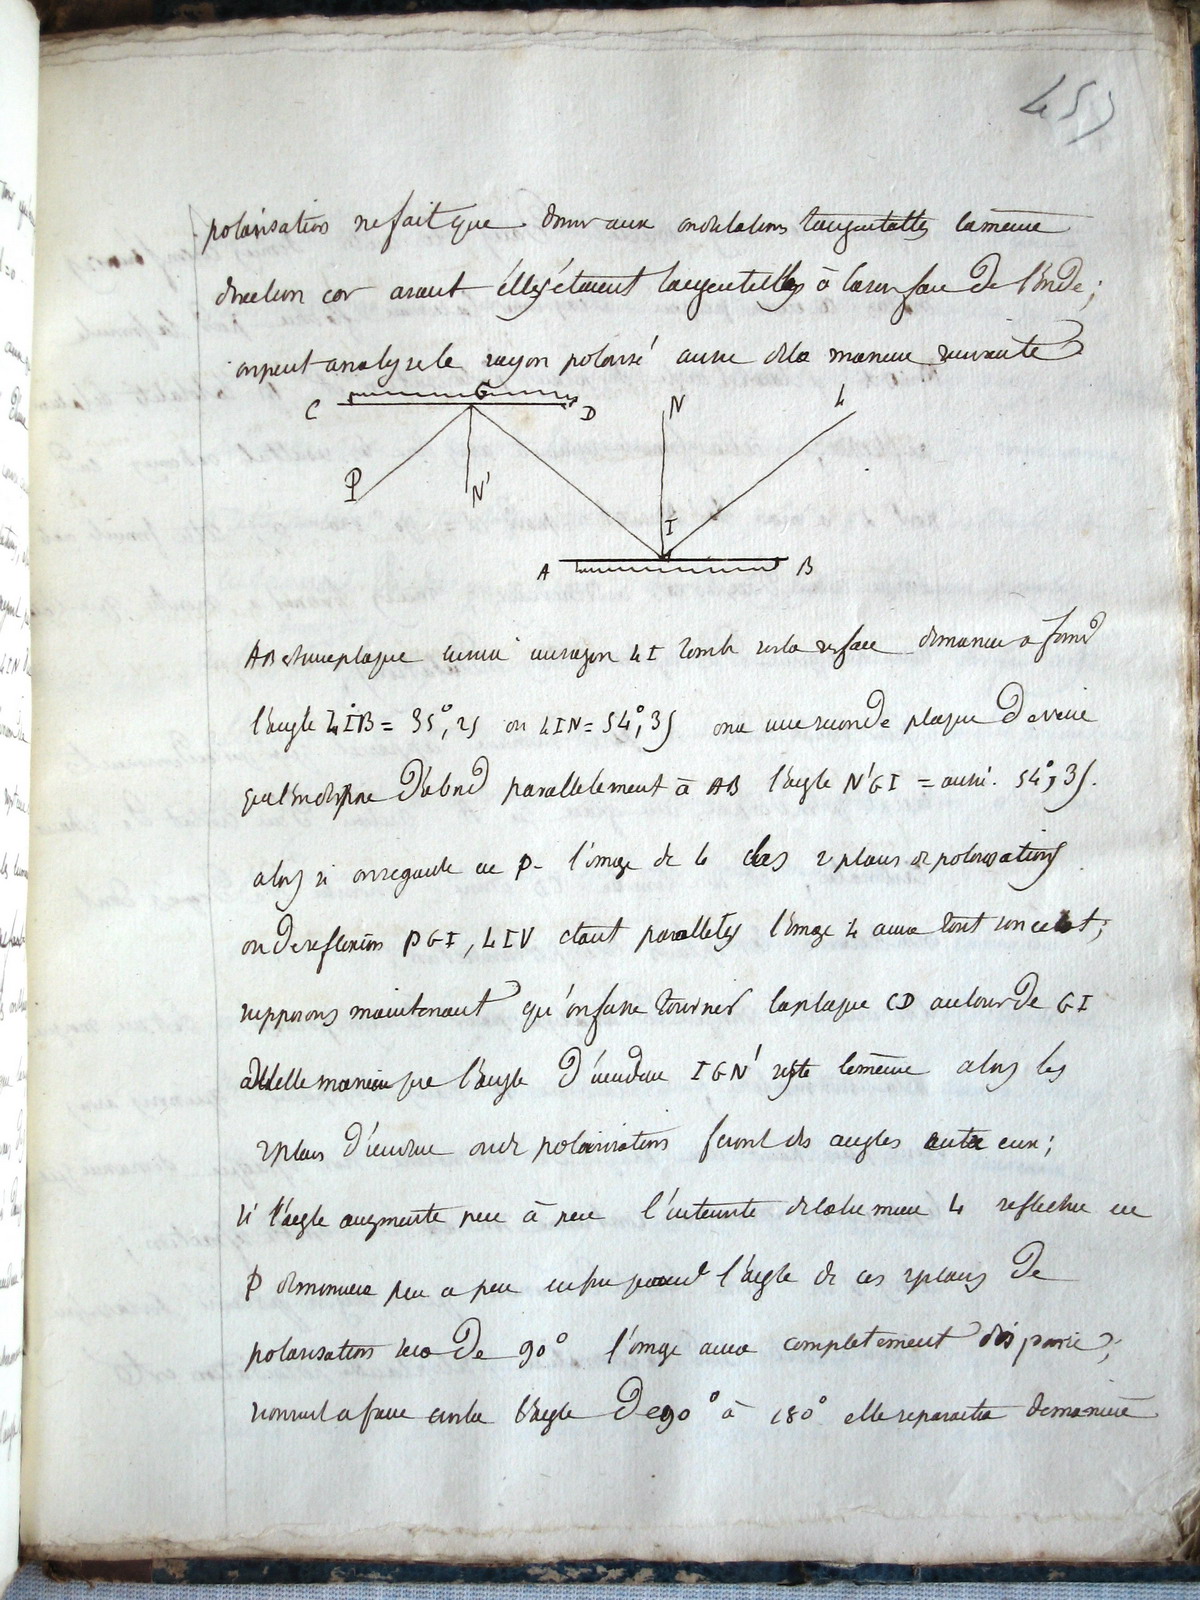 459
polarisation ne fait que donner aux ondulations tangentelles la même
direction car avant elles étaient tangentielles à la surface de l'onde;
on peut analyser le rayon polarisé aussi de la maniere suivante
C G D N L
P N' I
A B
AB est une plaque un rayon LI tombe sur la surface de maniere a former
l'angle LIB = 35°,25 ou LIN = 54°,35 on a une seconde plaque de verre
qu'on dispose d'abord parallelement à AB l'angle N'GI = aussi 54°,35.
alors si on regarde en P l'image de L les 2 plans de polarisation
ou de reflexion PGI, LIN etant paralleles l'image L aura tout son eclat;
supposons maintenant qu'on fasse tourner la plaque CD autour de GI
de telle maniere que l'angle d'incidence IGN' reste le même alors les
2 plans d'incidence ou de polarisation feront des angles entre eux;
si l'angle augmente peu à peu l'intensite de la lumiere L reflechie en
P diminuera peu a peu enfin quand l'angle de ces 2 plans de
polarisation sera de 90° l'image aura completement disparue;
l'angle de 90° à 180° elle reparaitra de maniere